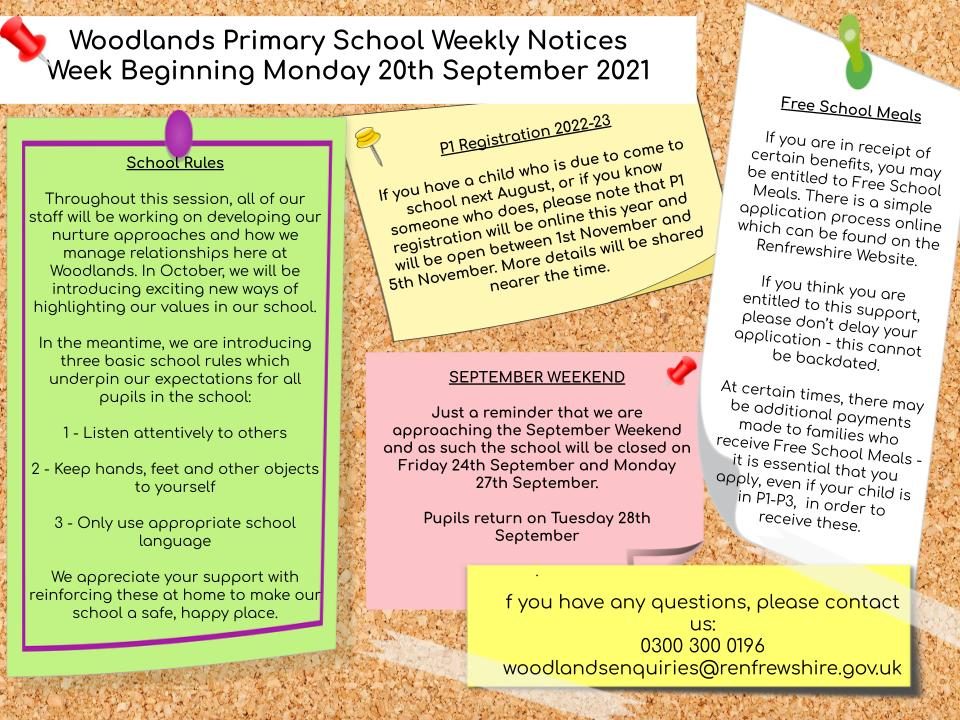 Woodlands Primary School Weekly Notices
Week Beginning Monday 20th September 2021
School Rules
Throughout this session, all of our
staff will be working on developing our
nurture approaches and how we
manage relationships here at
Woodlands. In October, we will be
introducing exciting new ways of
highlighting our values in our school.
In the meantime, we are introducing
three basic school rules which
underpin our expectations for all
pupils in the school:
1 - Listen attentively to others
2 - Keep hands, feet and other objects
to yourself
3 - Only use appropriate school
language
We appreciate your support with
reinforcing these at home to make our
school a safe, happy place.
P1 Registration 2022-23
If you have a child who is due to come to
school next August, or if you know
someone who does, please note that P1
registration will be online this year and
will be open between 1st November and
5th November. More details will be shared
nearer the time.
SEPTEMBER WEEKEND
Just a reminder that we are
approaching the September Weekend
and as such the school will be closed on
Friday 24th September and Monday
27th September.
Pupils return on Tuesday 28th
September
Free School Meals
If you are in receipt of
certain benefits, you may
be entitled to Free School
Meals. There is a simple
application process online
which can be found on the
Renfrewshire Website.
If you think you are
entitled to this support,
please don't delay your
application - this cannot
be backdated.
At certain times, there may
be additional payments
made to families who
receive Free School Meals -
it is essential that you
apply, even if your child is
in P1-P3, in order to
receive these.
.
f you have any questions, please contact
us:
0300 300 0196
woodlandsenquiries@renfrewshire.gov.uk